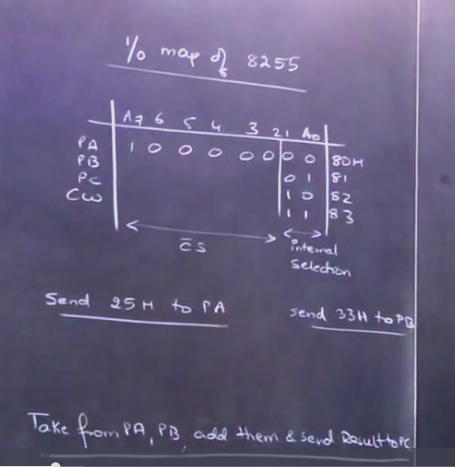 I/o map of 8255
A7 6 5 4 3 2 1 A0
PA 1 0 0 0 0 0 0 0 80H
PB 0 1 81
PC 1 0 82
CW 1 1 83
CS internal
Selection
Send 25H to PA send 33H to PB
Take from PA, PB, add them & send Result to PC